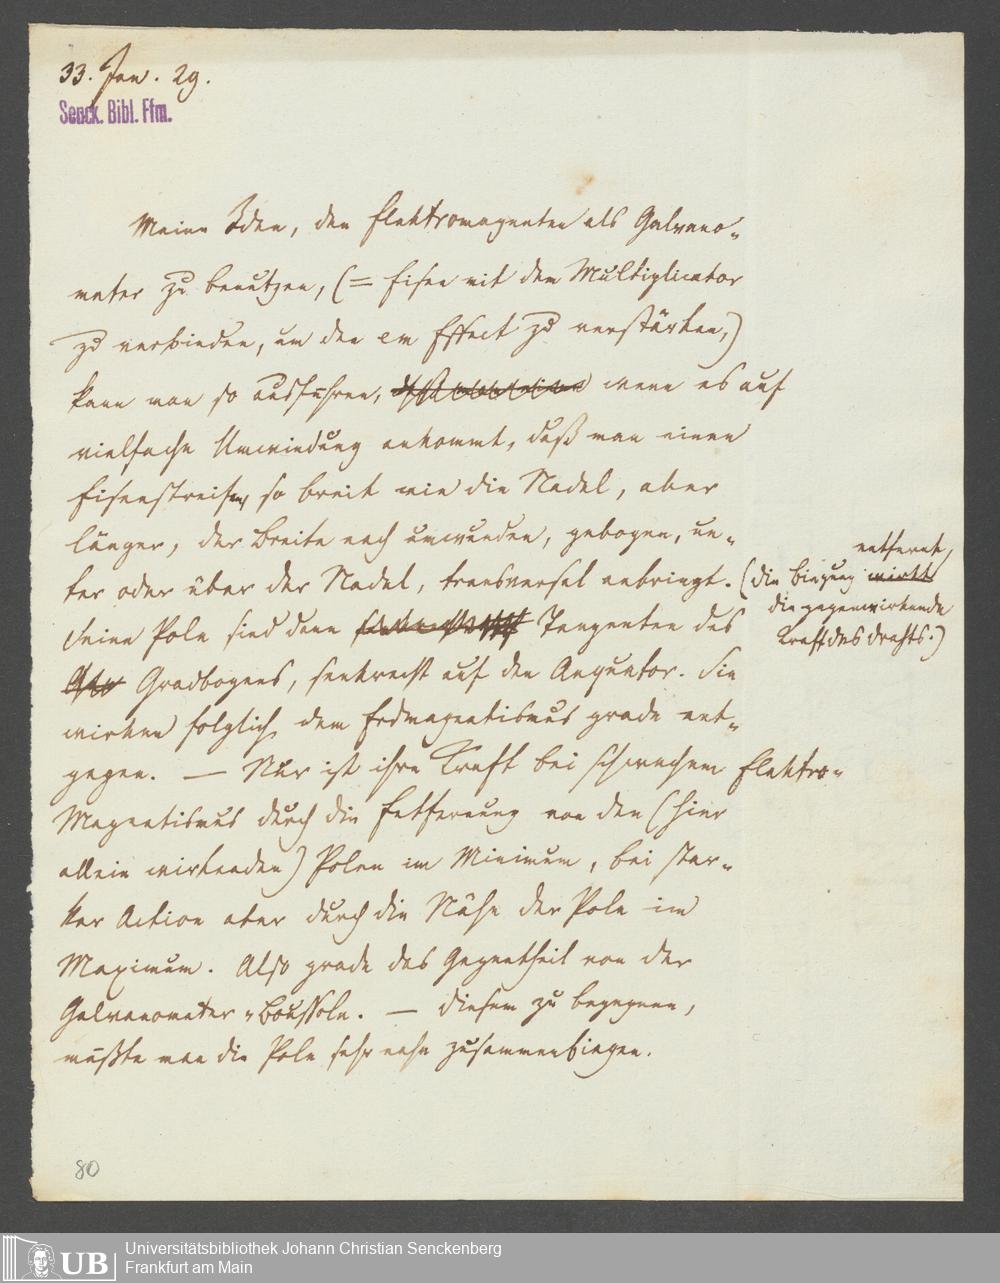 33. Jan. 29.
Senck. Bibl. Ffm.
Meine Idee, den Elektromagneten als Galvano-
meter zu benutzen, (= Eisen mit dem Multiplicator
zu verbinden, um den em Effect zu verstärken,)
kann man so ausführen, wenn es auf
vielfache Umwindung ankommt, daß man einen
Eisenstreifen, so breit wie die Nadel, aber
länger, der Breite nach umwunden, gebogen, un-
ter oder über der Nadel, transversal anbringt. (die Biegung wirkt entfernt
die gegenwirkende
Kraft des Drahts.)
Seine Pole sind dann Tangenten des
Gradbogens, senkrecht auf den Aequator. Sie
wirken folglich dem Erdmagnetismus grade ent-
gegen. — Nur ist ihre Kraft bei schwachem Elektro-
Magnetismus durch die Entfernung von den (hier
allein wirkenden) Polen im Minimum, bei star-
ker Action aber durch die Nähe der Pole im
Maximum. Also grade das Gegentheil von der
Galvanometer-Boussole. — Diesem zu begegnen,
müßte man die Pole sehr nahe zusammenbiegen.
80
UB
Universitätsbibliothek Johann Christian Senckenberg
Frankfurt am Main